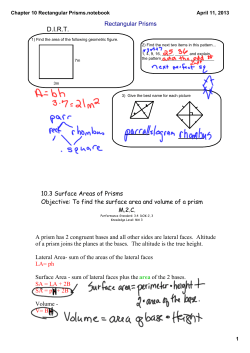 Chapter 10 Rectangular Prisms.notebook
April 11, 2013
Rectangular Prisms
D.I.R.T.
1) Find the area of the following geometric figure.
7m
3m
A = bh
3·7 = 21m²
2) Find the next two items in this pattern...
1, 4, 9, 16, 25, 36, and explain
the pattern add the odd #
next perfect sq
3) Give the best name for each picture
parallelogram rhombus
parr
rect rhombus
square
10.3 Surface Areas of Prisms
Objective: To find the surface area and volume of a prism
M.2.C.
A prism has 2 congruent bases and all other sides are lateral faces. Altitude
of a prism joins the planes at the bases. The altitude is the height.
Lateral Area- sum of the areas of the lateral faces
LA= ph
Surface Area - sum of lateral faces plus the area of the 2 bases.
SA = LA + 2B
Surface area = perimeter · height +
2 · area of the base.
Volume -
Volume = area of base · Height
1